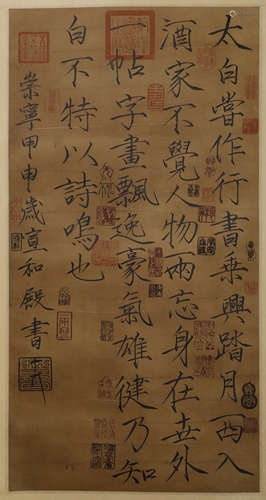 太白嘗作行書乘興踏月西入
酒家不覺人物兩忘身在世外
一帖字畫飄逸豪氣雄健乃知
白不特以詩鳴也
崇寧甲申歲宣和殿書